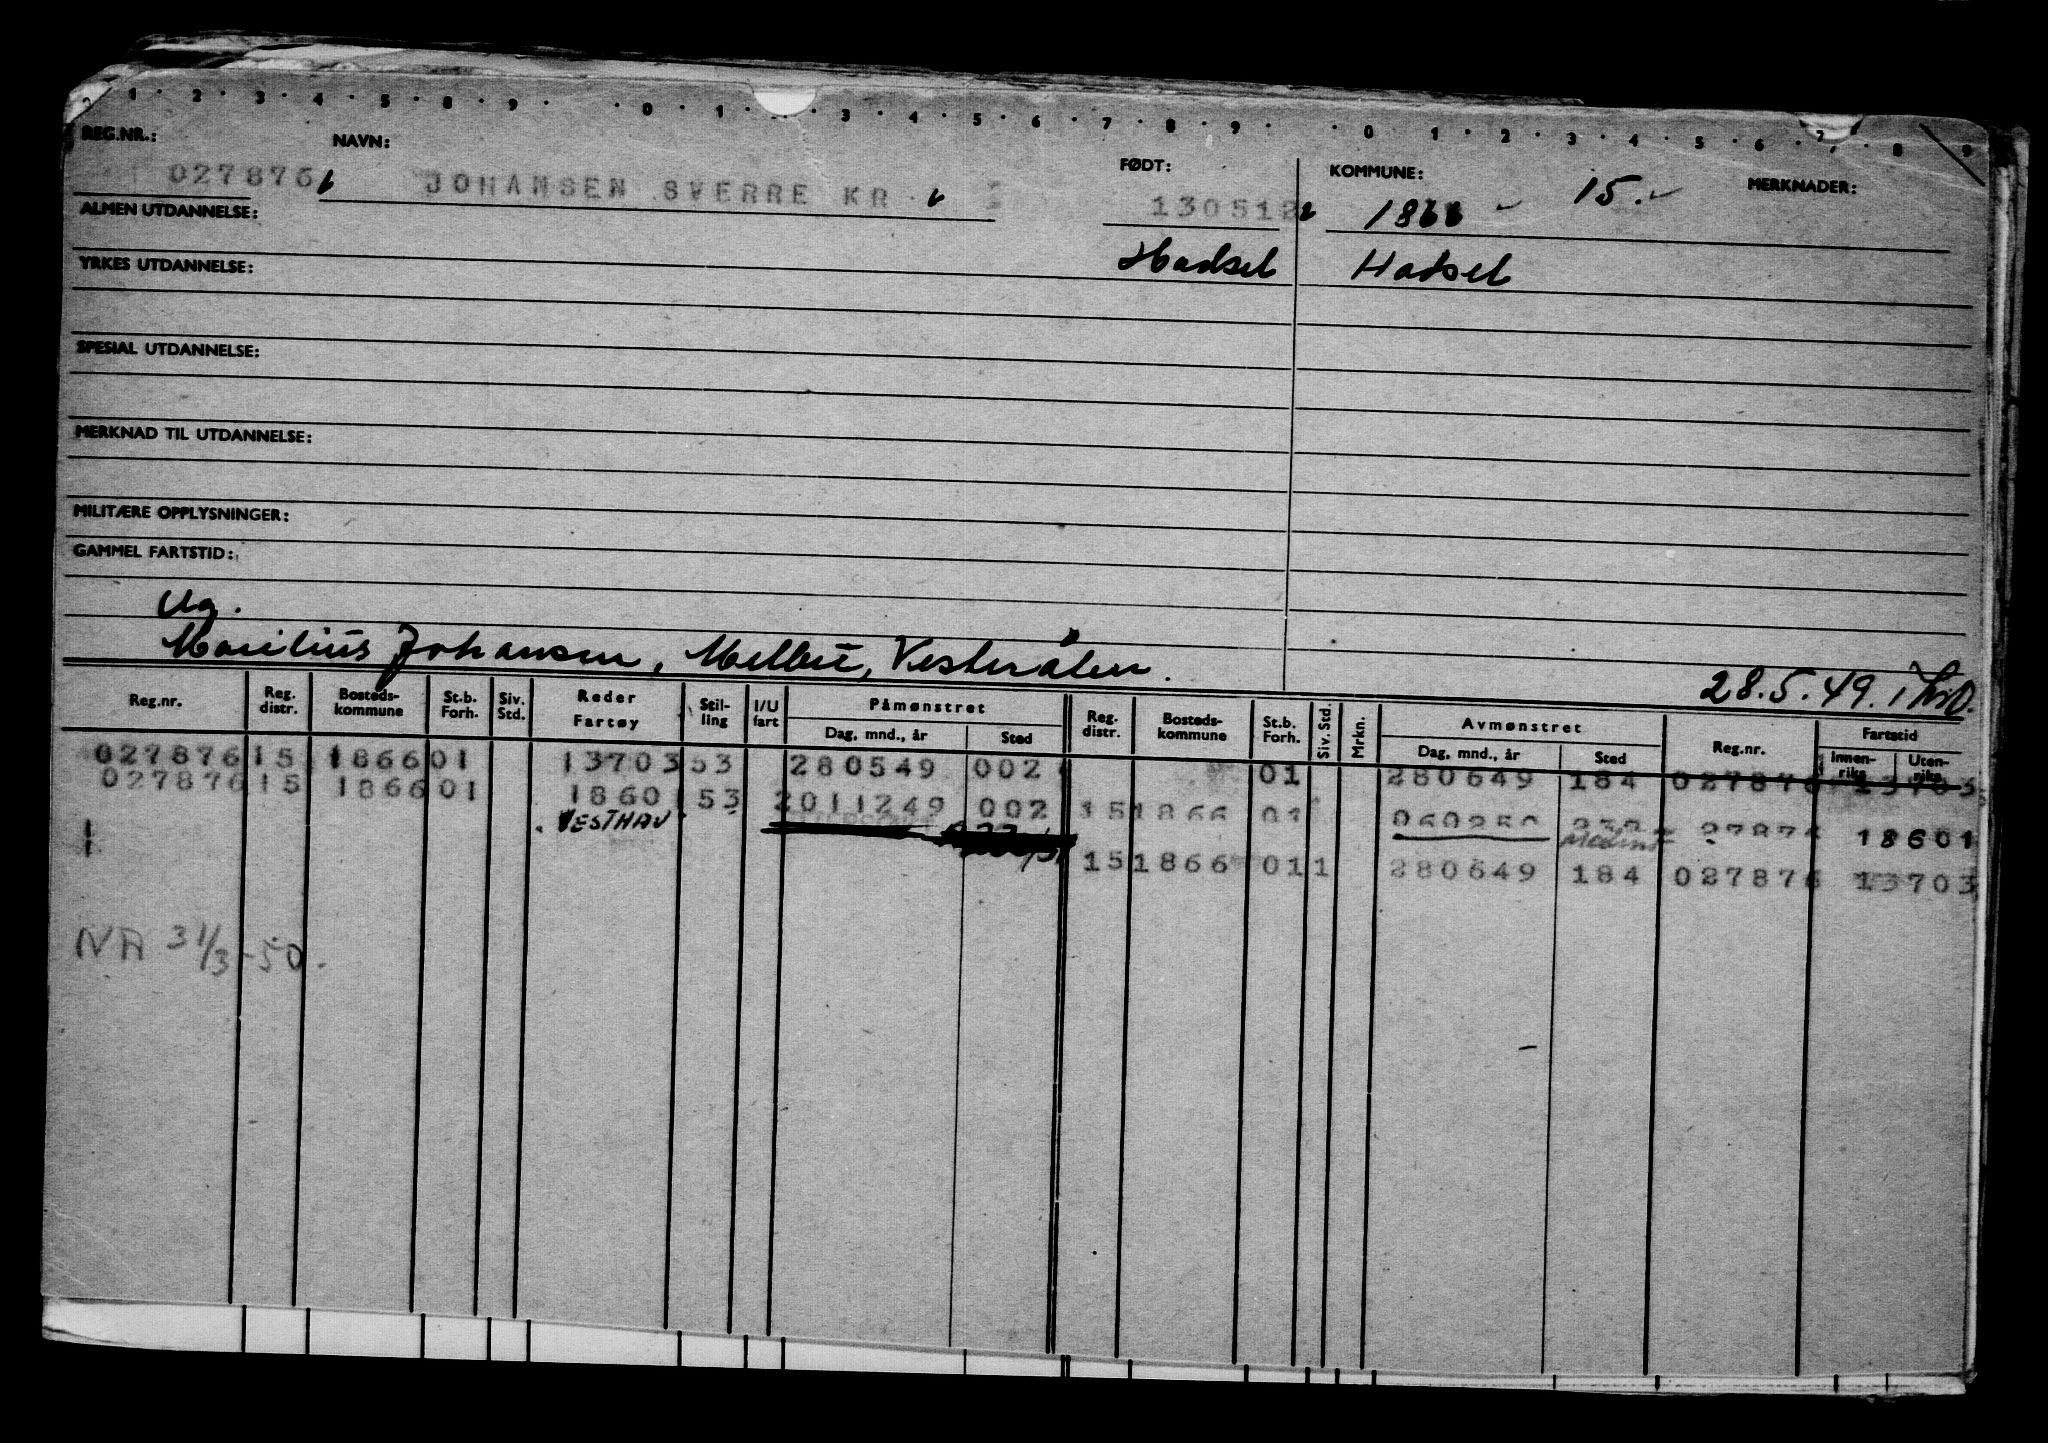 1 · 2 · 3 · 4 · 5 · 8 · 9 · · 0 · 1 · 3 · 4 · 5 · 6 · 7 · 8 · 9 · · 0 · 1 · 2 · 3 · 4 · 5 · 6 · 7 · 8 9
REG.NR.: NAVN: FØDT: KOMMUNE: MERKNADER:
027876 JOHANSEN SVERRE KR 130512 1866 - 15.-
ALMEN UTDANNELSE:
Hadsel Hadsel
YRKES UTDANNELSE:
SPESIAL UTDANNELSE:
MERKNAD TIL UTDANNELSE:
MILITÆRE OPPLYSNINGER:
GAMMEL FARTSTID:
Ug.
Marilius Johansen, Melbu, Vesterålen.
28.5.49.
Reg.nr. Reg. distr. Bosteds-kommune St.b. Forh. Siv. Std. Reder Fartøy Stil-ling I/U fart Påmønstret Dag, mnd., år Sted Reg. distr. Bosteds-kommune St.b. Forh. Siv. Std. Mrkn. Avmønstret Dag, mnd., år Sted Reg.nr. Fartstid Innen-riks Uten-riks
027876 15 1866 01 13703 53 280549 002 01 280649 184 027876 13703
027876 15 1866 01 18601 53 2011249 002 15 1866 01 060250 27876 18601
VESTHAV
15 1866 01 1 280649 184 027876 13703
NA 31/3-50.